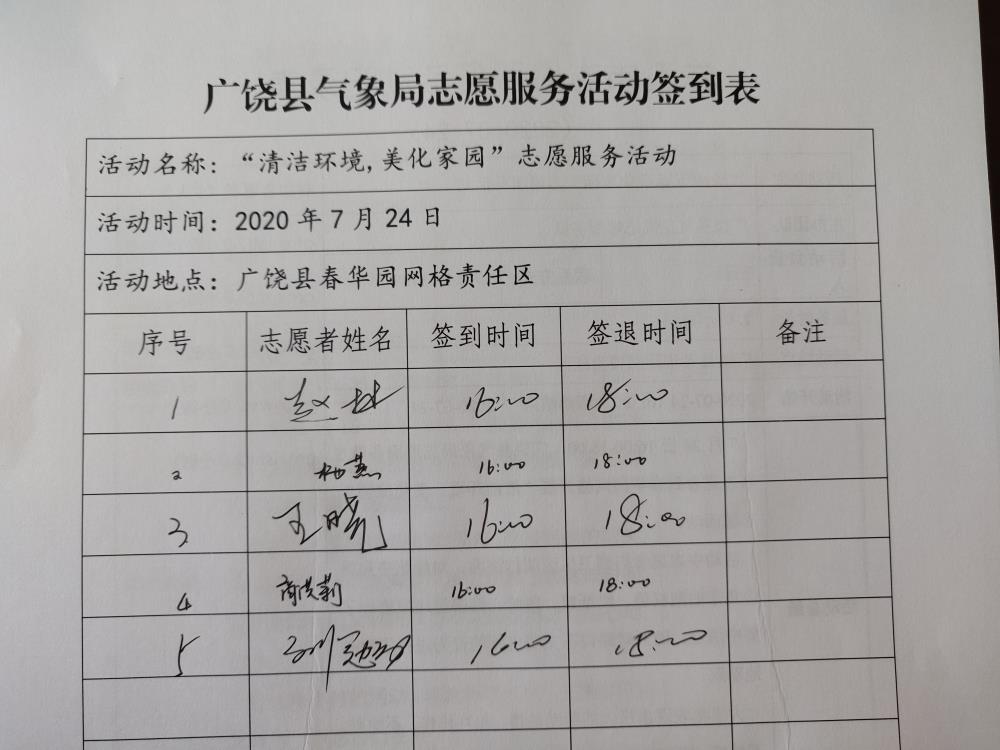 广饶县气象局志愿服务活动签到表
活动名称：“清洁环境,美化家园”志愿服务活动
活动时间：2020 年 7 月 24 日
活动地点：广饶县春华园网格责任区
序号 志愿者姓名 签到时间 签退时间 备注
1 赵 16:00 18:00
2 杨燕 16:00 18:00
3 王晓 16:00 18:00
4 莉 16:00 18:00
5 16:00 18:00